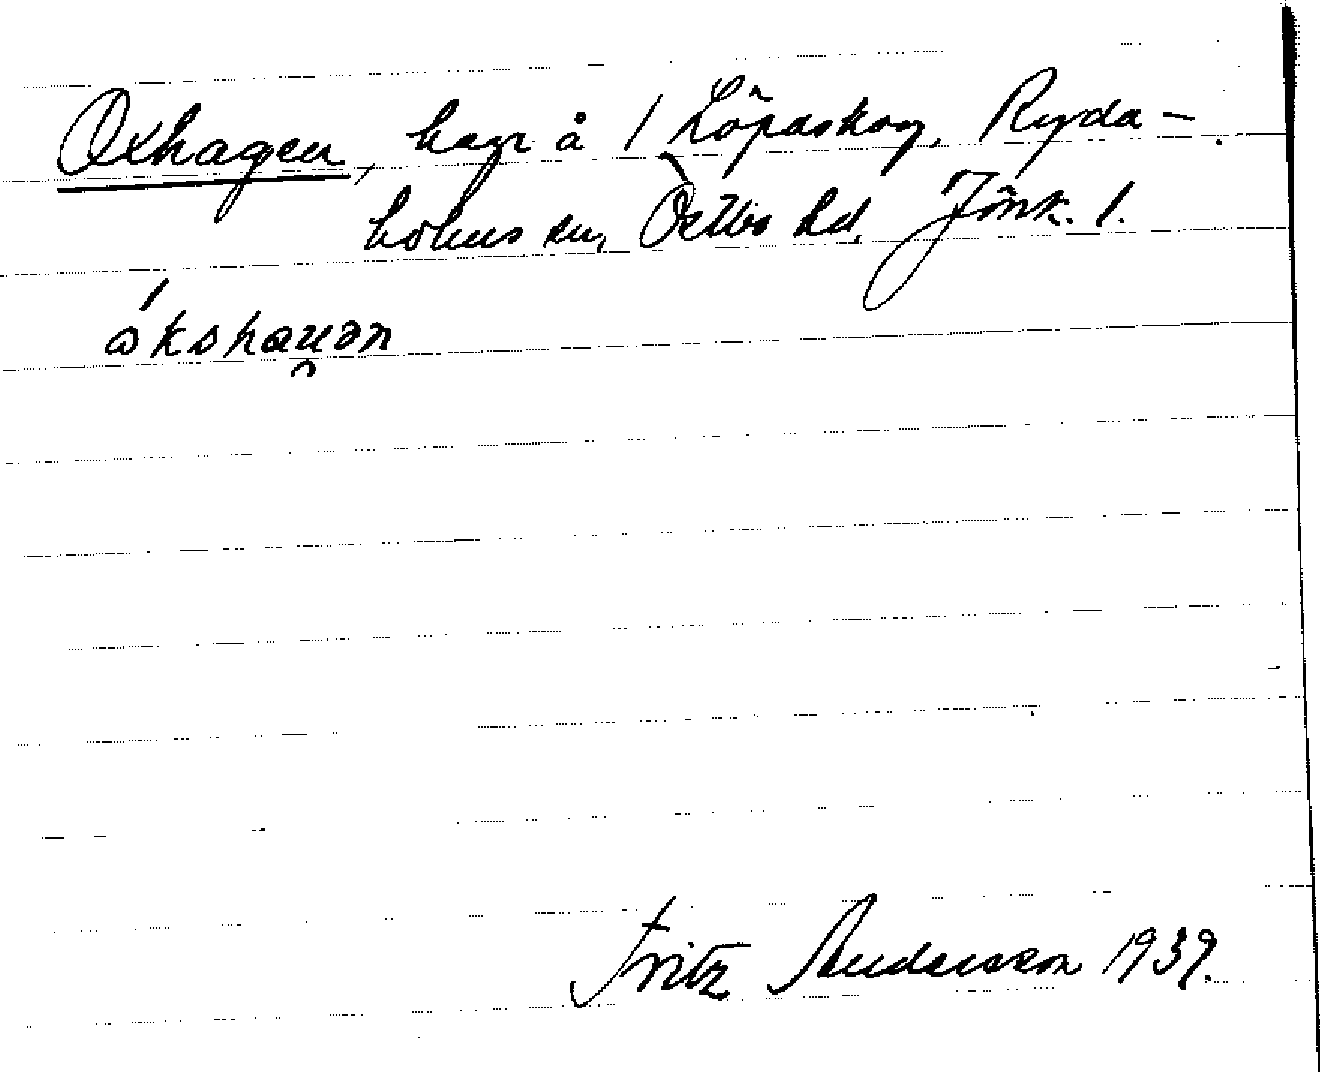 Oxhagen, hage å 1 Löpaskog, Ryda-
holms sn, Östbo hd, Jönk. l.
ókshau̯ən
Fritz Andersson 1939.